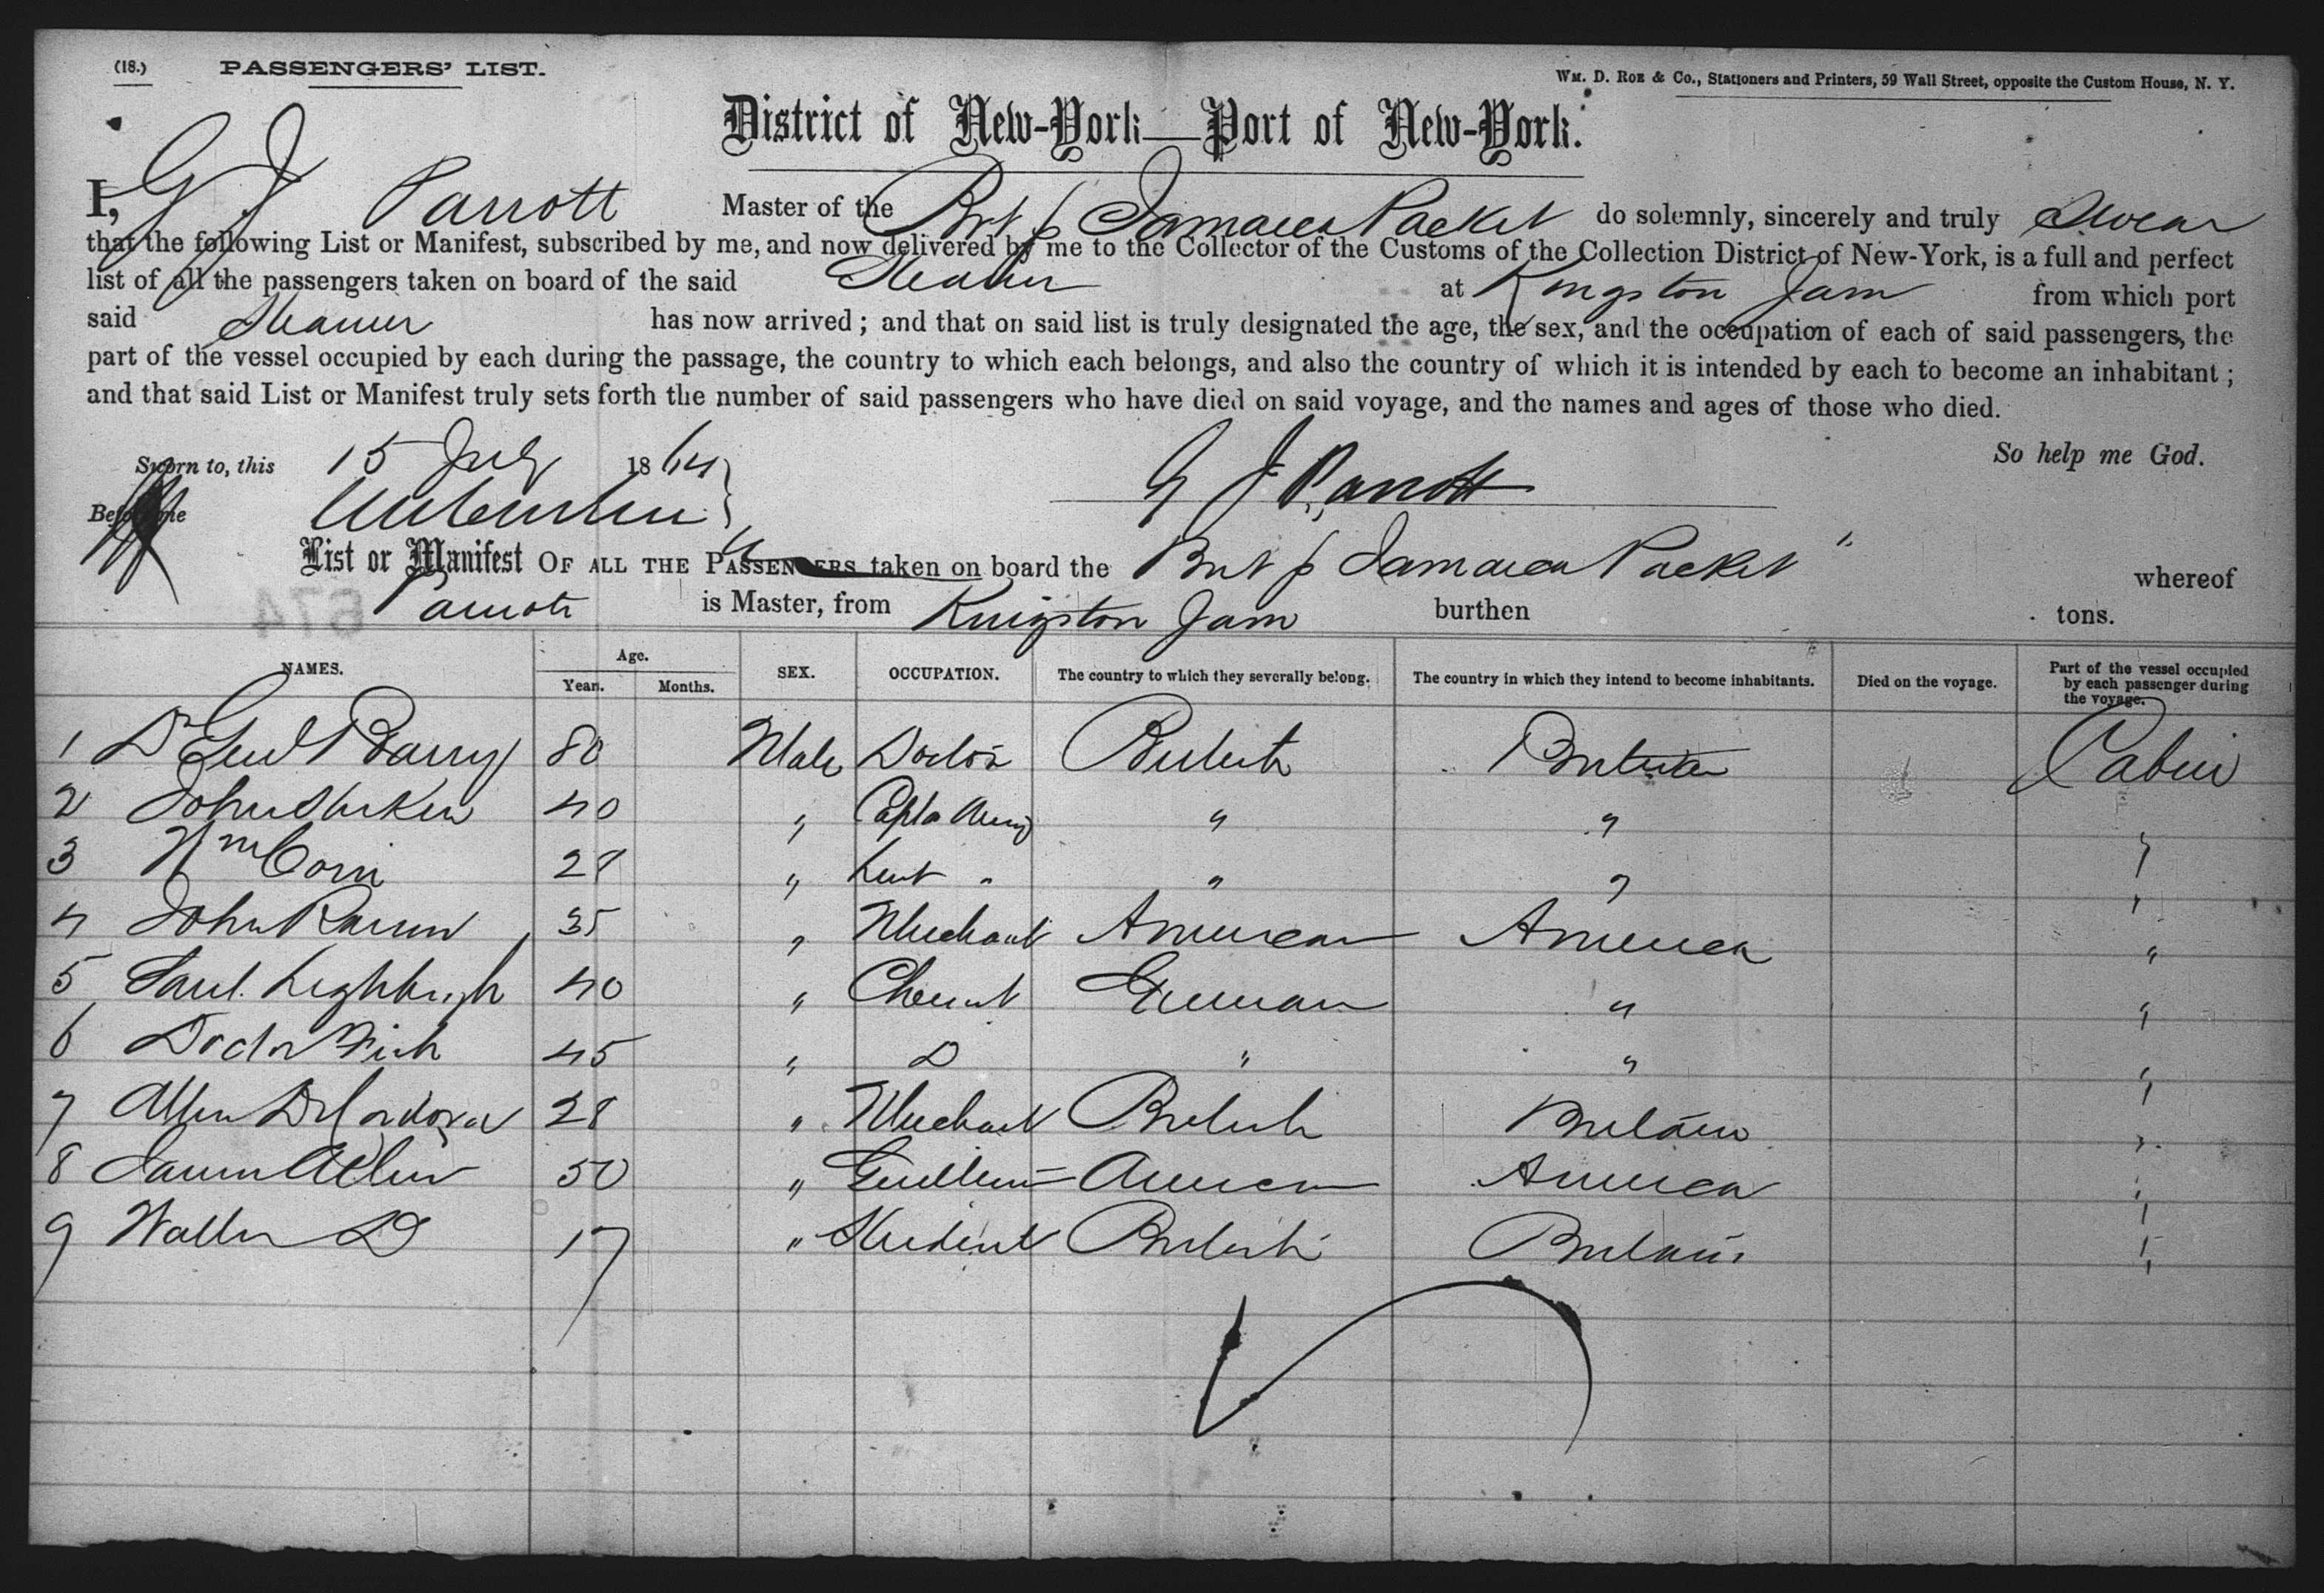 (18.) PASSENGERS' LIST.
WM. D. ROE & Co., Stationers and Printers, 59 Wall Street, opposite the Custom House, N. Y.
District of New-York—Port of New-York.
I, G J Parrott Master of the Brit Jamaica Packet do solemnly, sincerely and truly Swear
that the following List or Manifest, subscribed by me, and now delivered by me to the Collector of the Customs of the Collection District of New-York, is a full and perfect
list of all the passengers taken on board of the said Steamer at Kingston Jam from which port
said Steamer has now arrived; and that on said list is truly designated the age, the sex, and the occupation of each of said passengers, the
part of the vessel occupied by each during the passage, the country to which each belongs, and also the country of which it is intended by each to become an inhabitant;
and that said List or Manifest truly sets forth the number of said passengers who have died on said voyage, and the names and ages of those who died.
So help me God.
Sworn to, this 15 July 1864
G J Parrott
Before me
List or Manifest OF ALL THE PASSENGERS taken on board the Brit Jamaica Packet" whereof
Parrott is Master, from Kingston Jam burthen tons.
674
NAMES. Age. Years. Months. SEX. OCCUPATION. The country to which they severally belong. The country in which they intend to become inhabitants. Died on the voyage. Part of the vessel occupied by each passenger during the voyage.
1 Dr Genl Barry 80 Male Doctor British Britain Cabin
2 John 40 " Capta Army " " "
3 Wm 28 " Leut " " " "
4 John 35 " Merchant American America "
5 Saml. 40 " Chemist German " "
6 Doctor 45 " D " " "
7 Allen DeCordova 28 " Merchant British Britain "
8 James Allen 50 " Gentleman American America "
9 Walter D 17 " Student British Britain "